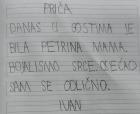 PRIČA
DANAS U GOSTIMA JE
BILA PETRINA MAMA.
BOJALISAMO SRCE. OSEĆAO
SAM SE ODLIČNO.
IVAN